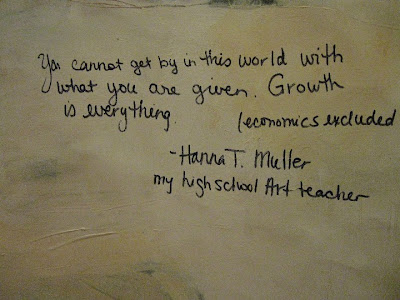 You cannot get by in this world with
what you are given. Growth
is everything. (economics excluded
-Hanna T. Muller
my high school Art teacher